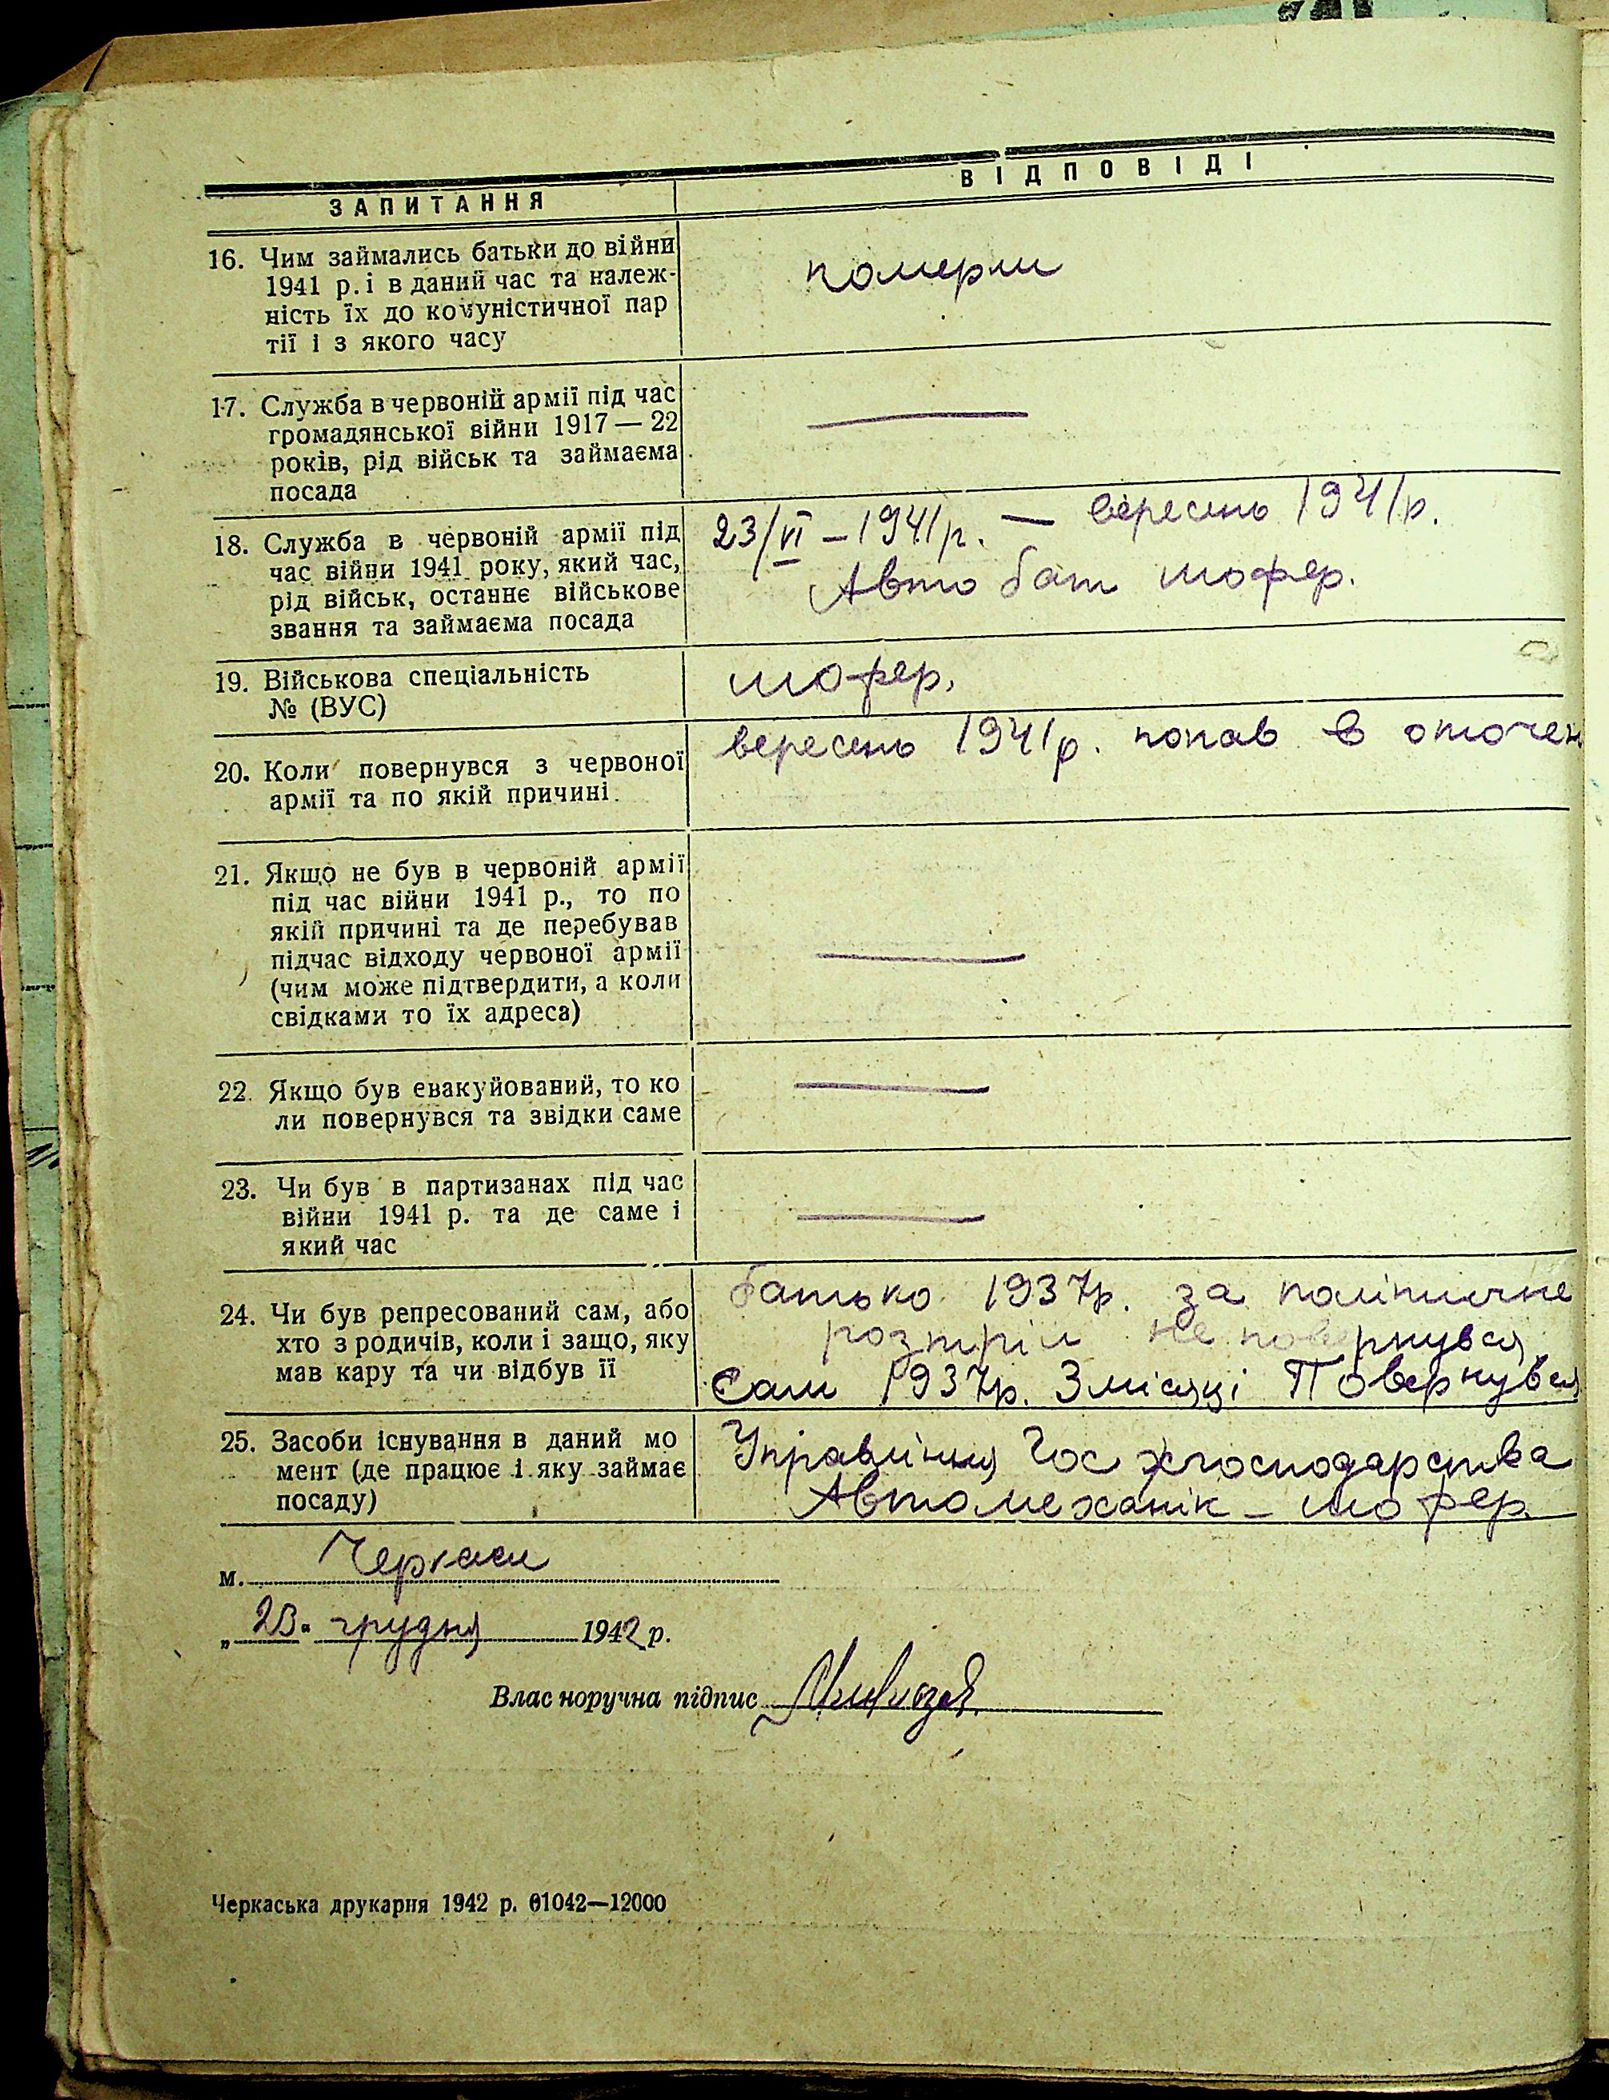 ЗАПИТАННЯ
ВІДПОВІДІ
16. Чим займались батьки до війни
1941 р. і в даний час та належ-
ність їх до комуністичної пар
тії і з якого часу
померли
17. Служба в червоній армії під час
громадянської війни 1917 — 22
років, рід військ та займаєма
посада
—
18. Служба в червоній армії під
час війни 1941 року, який час,
рід військ, останнє військове
звання та займаєма посада
23/VI – 1941 р. — вересень 1941 р.
Авто бат шофер.
19. Військова спеціальність
№ (ВУС)
шофер.
20. Коли повернувся з червоної
армії та по якій причині
вересень 1941 р. попав в оточен
21. Якщо не був в червоній армії
під час війни 1941 р., то по
якій причині та де перебував
підчас відходу червоної армії
(чим може підтвердити, а коли
свідками то їх адреса)
—
22. Якщо був евакуйований, то ко
ли повернувся та звідки саме
—
23. Чи був в партизанах під час
війни 1941 р. та де саме і
який час
—
24. Чи був репресований сам, або
хто з родичів, коли і защо, яку
мав кару та чи відбув її
батько 1937р. за політичне
розтріл не повернувся
Сам 1937р. 3 місяці Повернувся
25. Засоби існування в даний мо
мент (де працює і яку займає
посаду)
Управління Гос
Автомеханік – шофер.
м. Черкаси
„23" грудня 1942 р.
Власноручна підпис
Черкаська друкарня 1942 р. 01042—12000